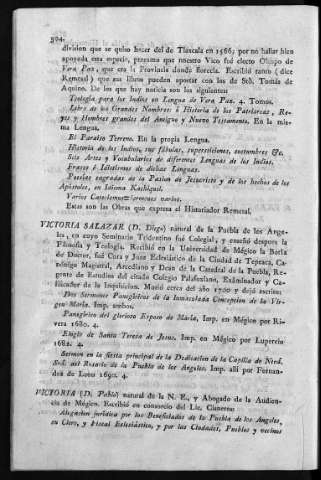 504.
division que se quiso hacer del de Tlaxcala en 1586; por no hallar bien
apoyada esta especie, presumo que nuestro Vico fué electo Obispo de
Vera Paz, que era la Provincia donde florecia. Escribió tanto (dice
Remesal) que sus libros pueden apostar con los de Sto. Tomás de
Aquino. De los que hay noticia son los siguientes:
Teología para los Indios en Lengua de Vera Paz. 4. Tomos.
Libro de los Grandes Nombres: ó Historia de los Patriarcas, Re-
yes y Hombres grandes del Antiguo y Nuevo Testamento. En la mis-
ma Lengua.
El Paraiso Terreno. En la propia Lengua.
Historia de los Indios, sus fábulas, supersticiones, costumbres &c.
Seis Artes y Vocabularios de diferentes Lenguas de los Indios.
Frases é Idiotismos de dichas Lenguas.
Poesías sagradas de la Pasion de Jesucristo y de los hechos de los
Apóstoles, en Idioma Kachiquel.
Varios Catecismos=Sermones varios.
Estas son las Obras que expresa el Historiador Remesal.
VICTORIA SALAZAR (D. Diego) natural de la Puebla de los Ange-
les, en cuyo Seminario Tridentino fué Colegial, y enseñó despues la
Filosofia y Teología. Recibió en la Universidad de México la Borla
de Doctor, fué Cura y Juez Eclesiástico de la Ciudad de Tepeaca, Ca-
nónigo Magistral, Arcediano y Dean de la Catedral de la Puebla, Re-
gente de Estudios del citado Colegio Palafoxiano, Examinador y Ca-
lificador de la Inquisicion. Murió cerca del año 1700 y dejó escrito:
Dos Sermones Panegíricos de la Inmaculada Concepcion de la Vir-
gen María. Imp. ambos.
Panegírico del glorioso Esposo de María. Imp. en Mégico por Ri-
vera 1680. 4.
Elogio de Santa Teresa de Jesus. Imp. en Mégico por Lupercio
1682. 4.
Sermon en la fiesta principal de la Dedicacion de la Capilla de Ntrá.
Srá. del Rosario de la Puebla de los Angeles. Imp. allí por Fernan-
dez de Leon 1690. 4.
VICTORIA (D. Pablo) natural de la N. E., y Abogado de la Audien-
cia de Mégico. Escribió en consorcio del Lic. Cisneros:
Alegacion jurídica por los Beneficiados de la Puebla de los Angeles,
su Clero, y Fiscal Eclesiástico, y por las Ciudades, Pueblos y vecinos